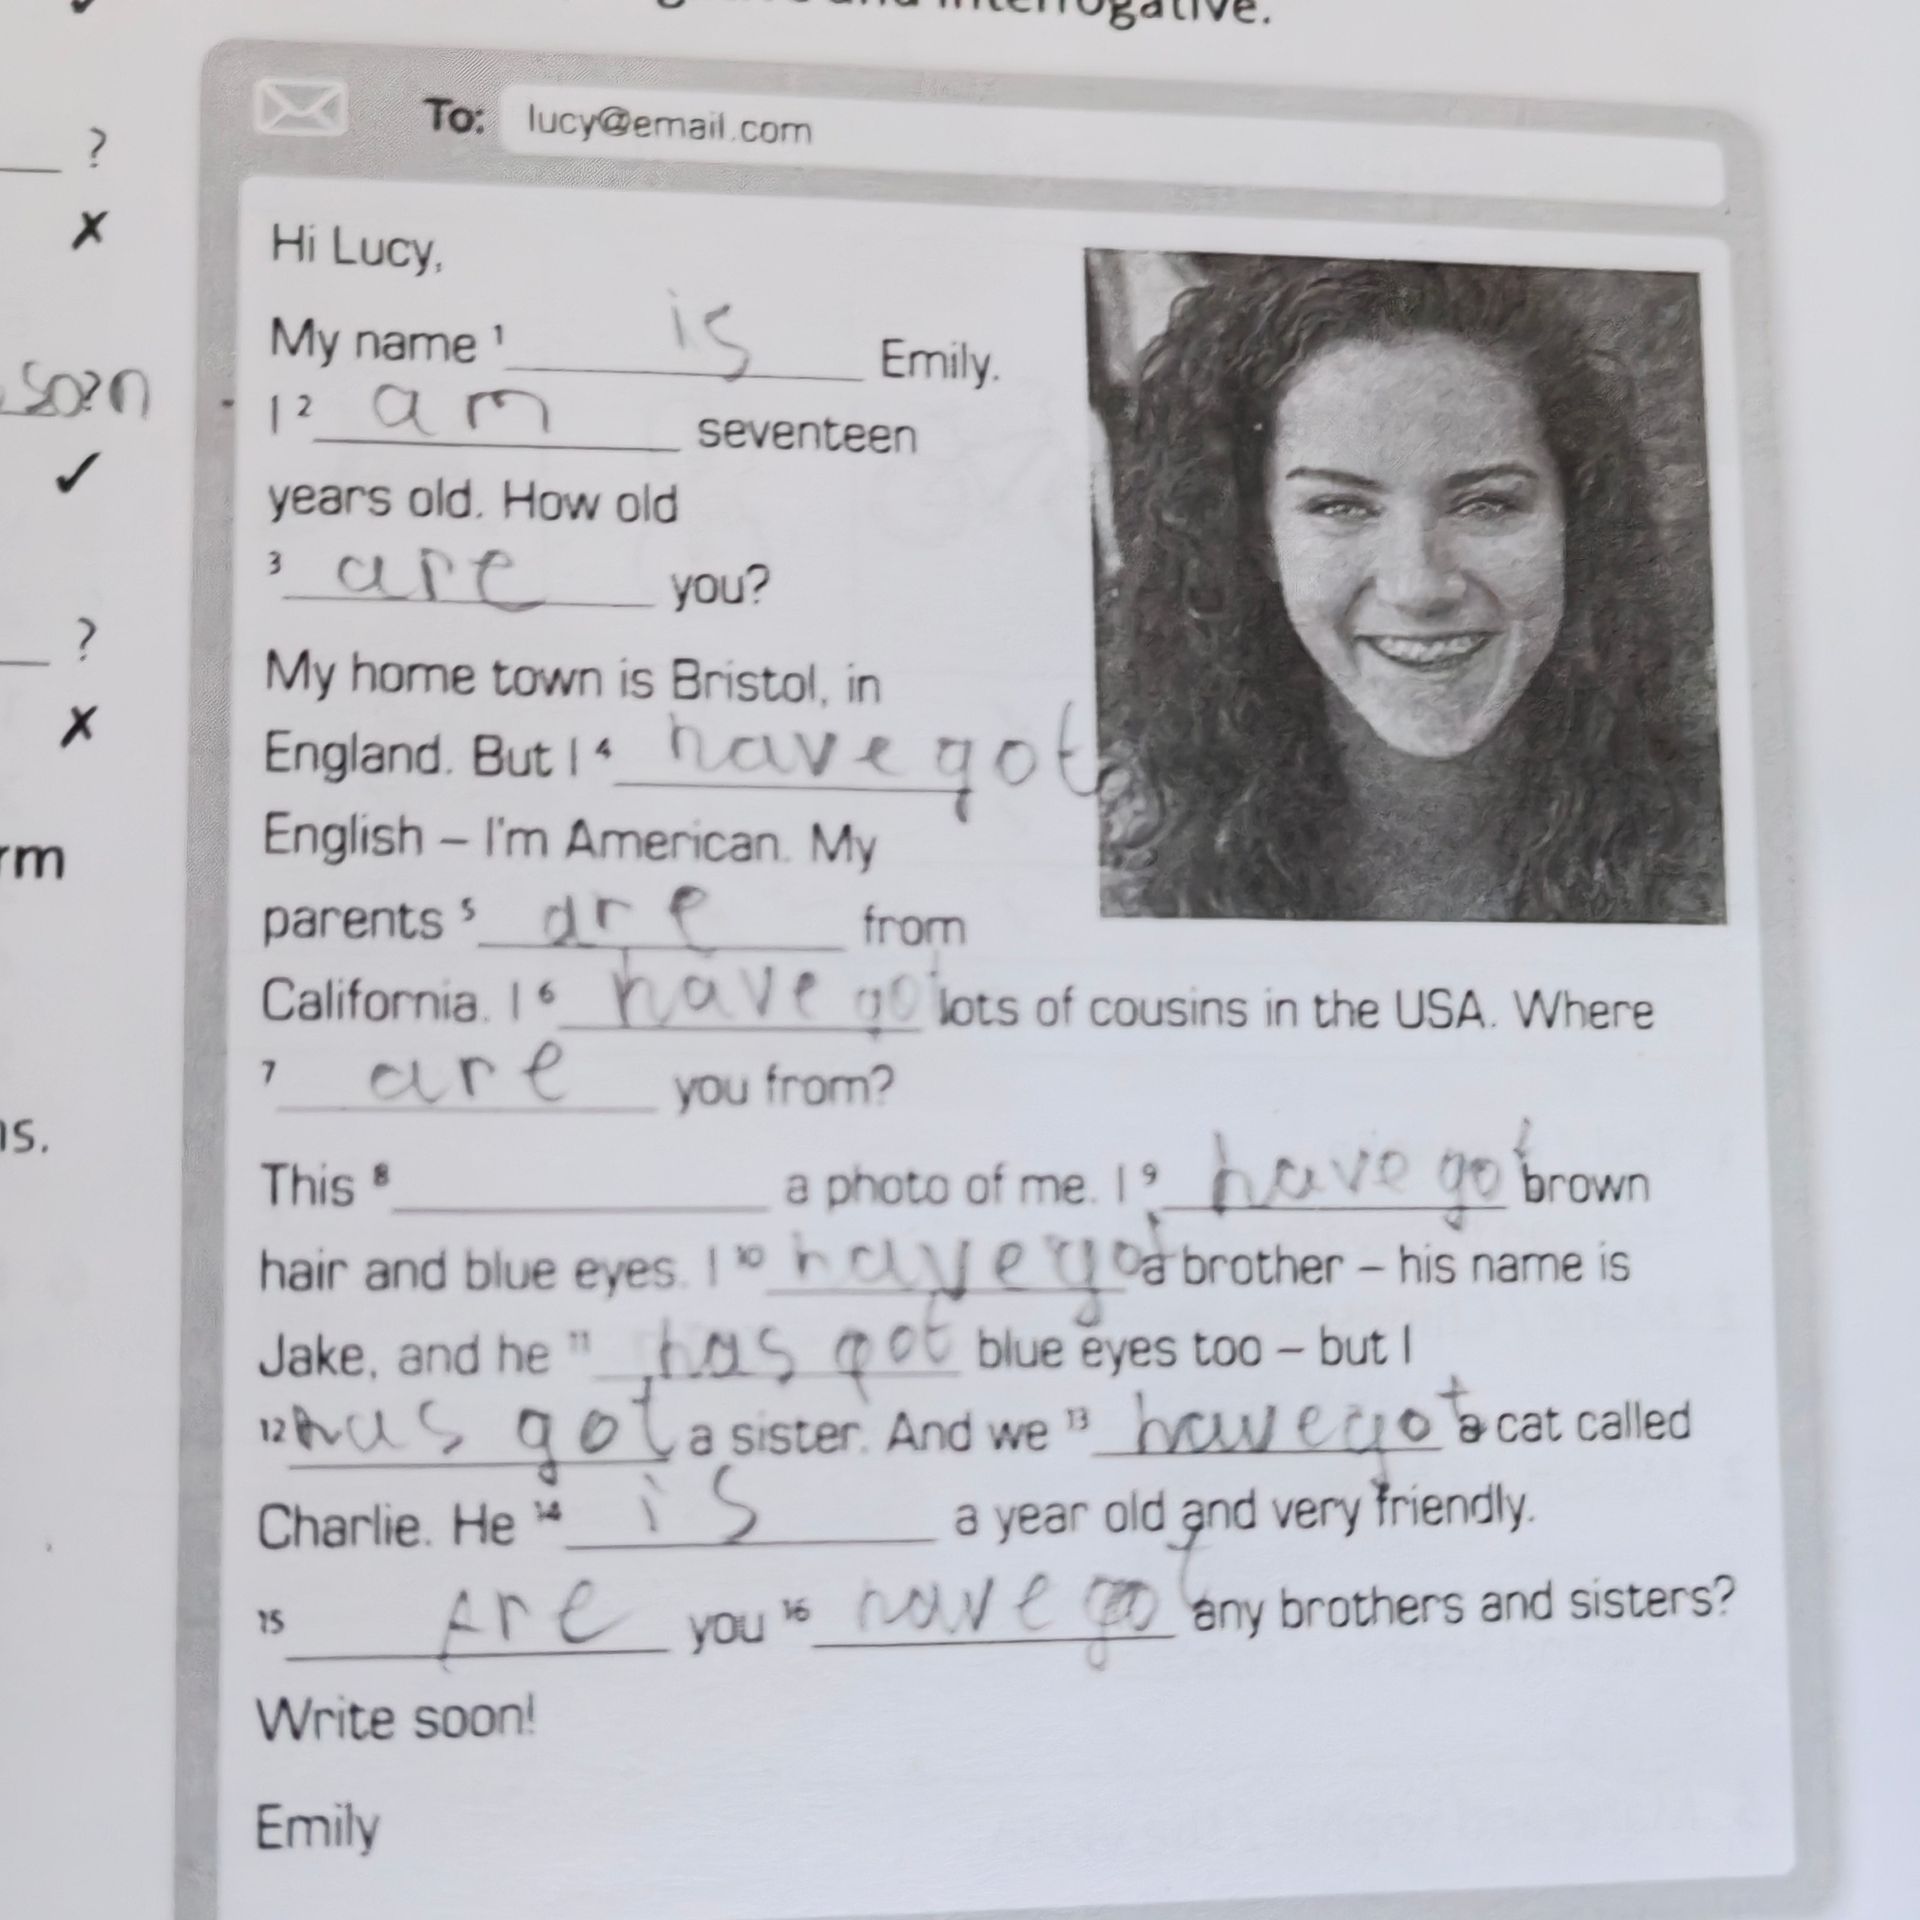 and interrogative.
To: lucy@email.com
?
X
Hi Lucy,
My name 1 is Emily.
I 2 am seventeen
✓
years old. How old
3 are you?
?
My home town is Bristol, in
X
England. But I 4 have got
English – I'm American. My
rm
parents 5 are from
California. I 6 have got lots of cousins in the USA. Where
7 are you from?
s.
This 8 a photo of me. I 9 have got brown
hair and blue eyes. I 10 have got a brother – his name is
Jake, and he 11 has got blue eyes too – but I
12 has got a sister. And we 13 have got a cat called
Charlie. He 14 is a year old and very friendly.
15 Are you 16 have got any brothers and sisters?
Write soon!
Emily